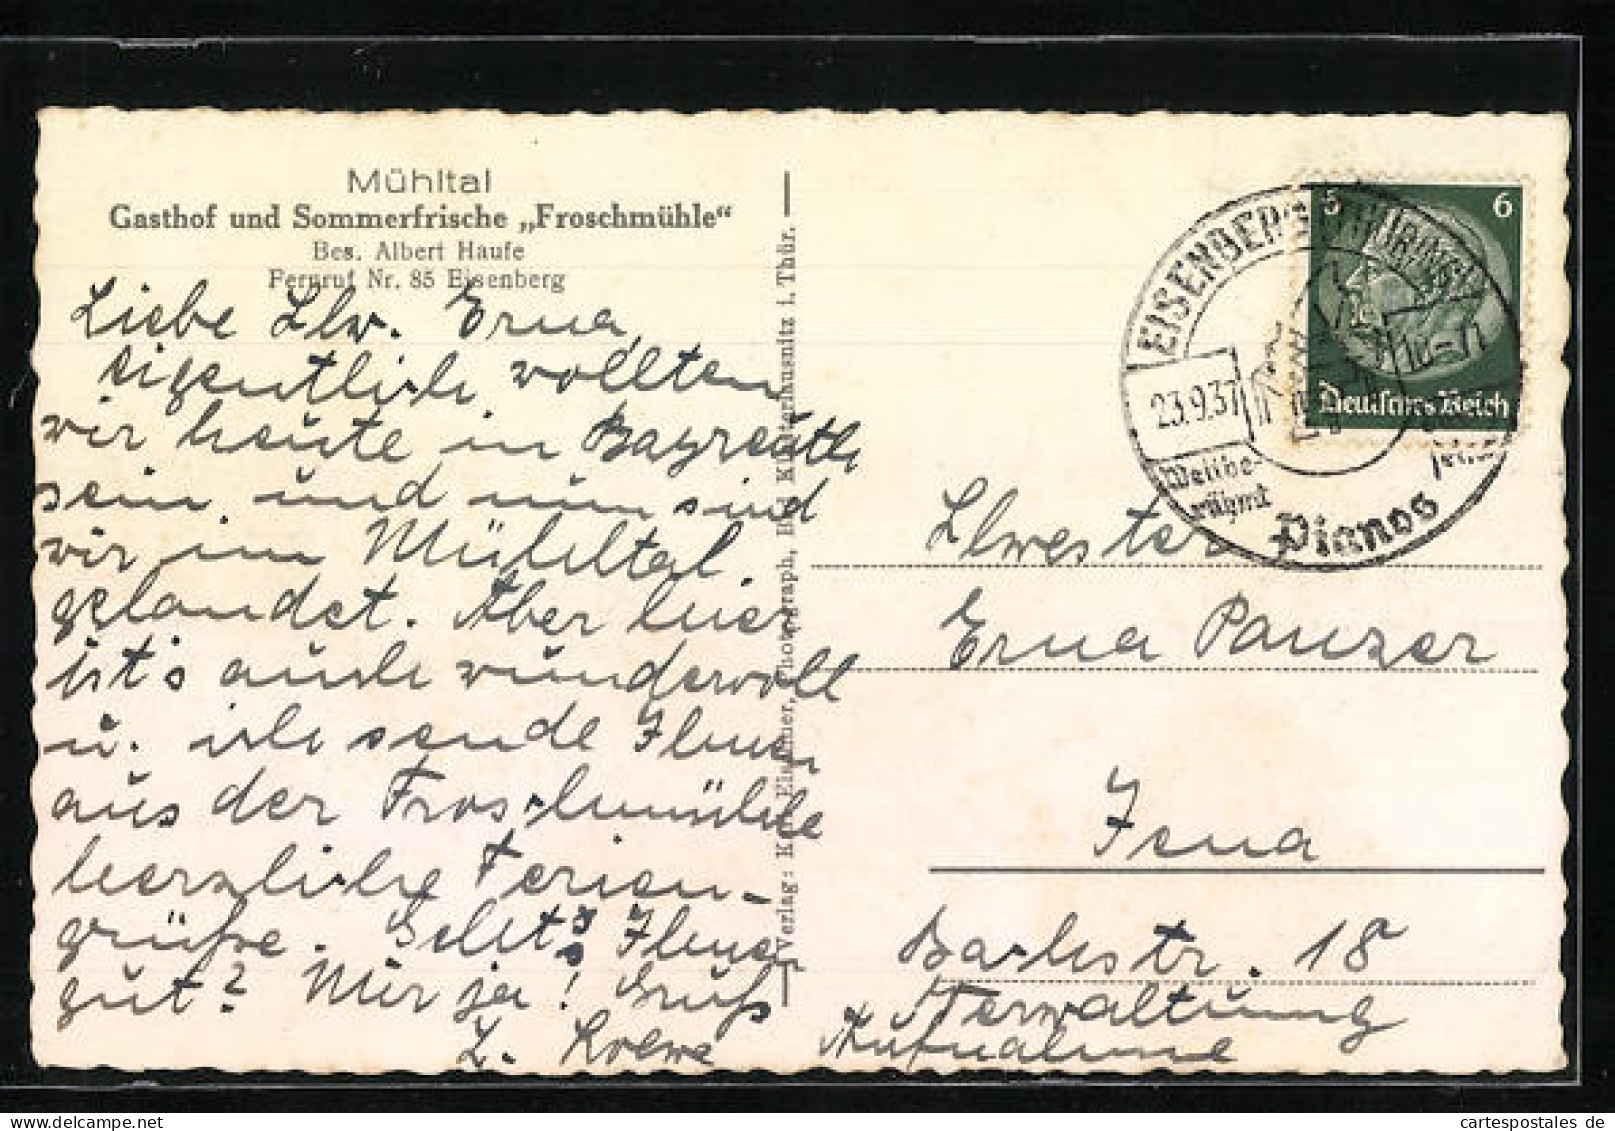 Mühltal
Gasthof und Sommerfrische „Froschmühle“
Bes. Albert Haufe
Fernruf Nr. 85 Eisenberg
Liebe Schw. Erna,
eigentlich wollten
wir heute in Bayreuth
sein und nun sind
wir im Mühltal
gelandet. Aber hier
ist's auch wundervoll
u. ich sende Ihnen
aus der Froschmühle
herzliche Ferien-
grüße. Geht's Ihnen
gut? Mir ja! Gruß
Verlag: Eisenhuer, Photograph, Bad Klosterlausnitz i. Thür.
5 6
Deutsches Reich
EISENBERG (THÜRINGEN)
23.9.37
Weltbe-
rühmt
Pianos
Schwester
Erna Panzer
Jena
Bachstr. 18
Verwaltung
Aufnahme
cartespostales de